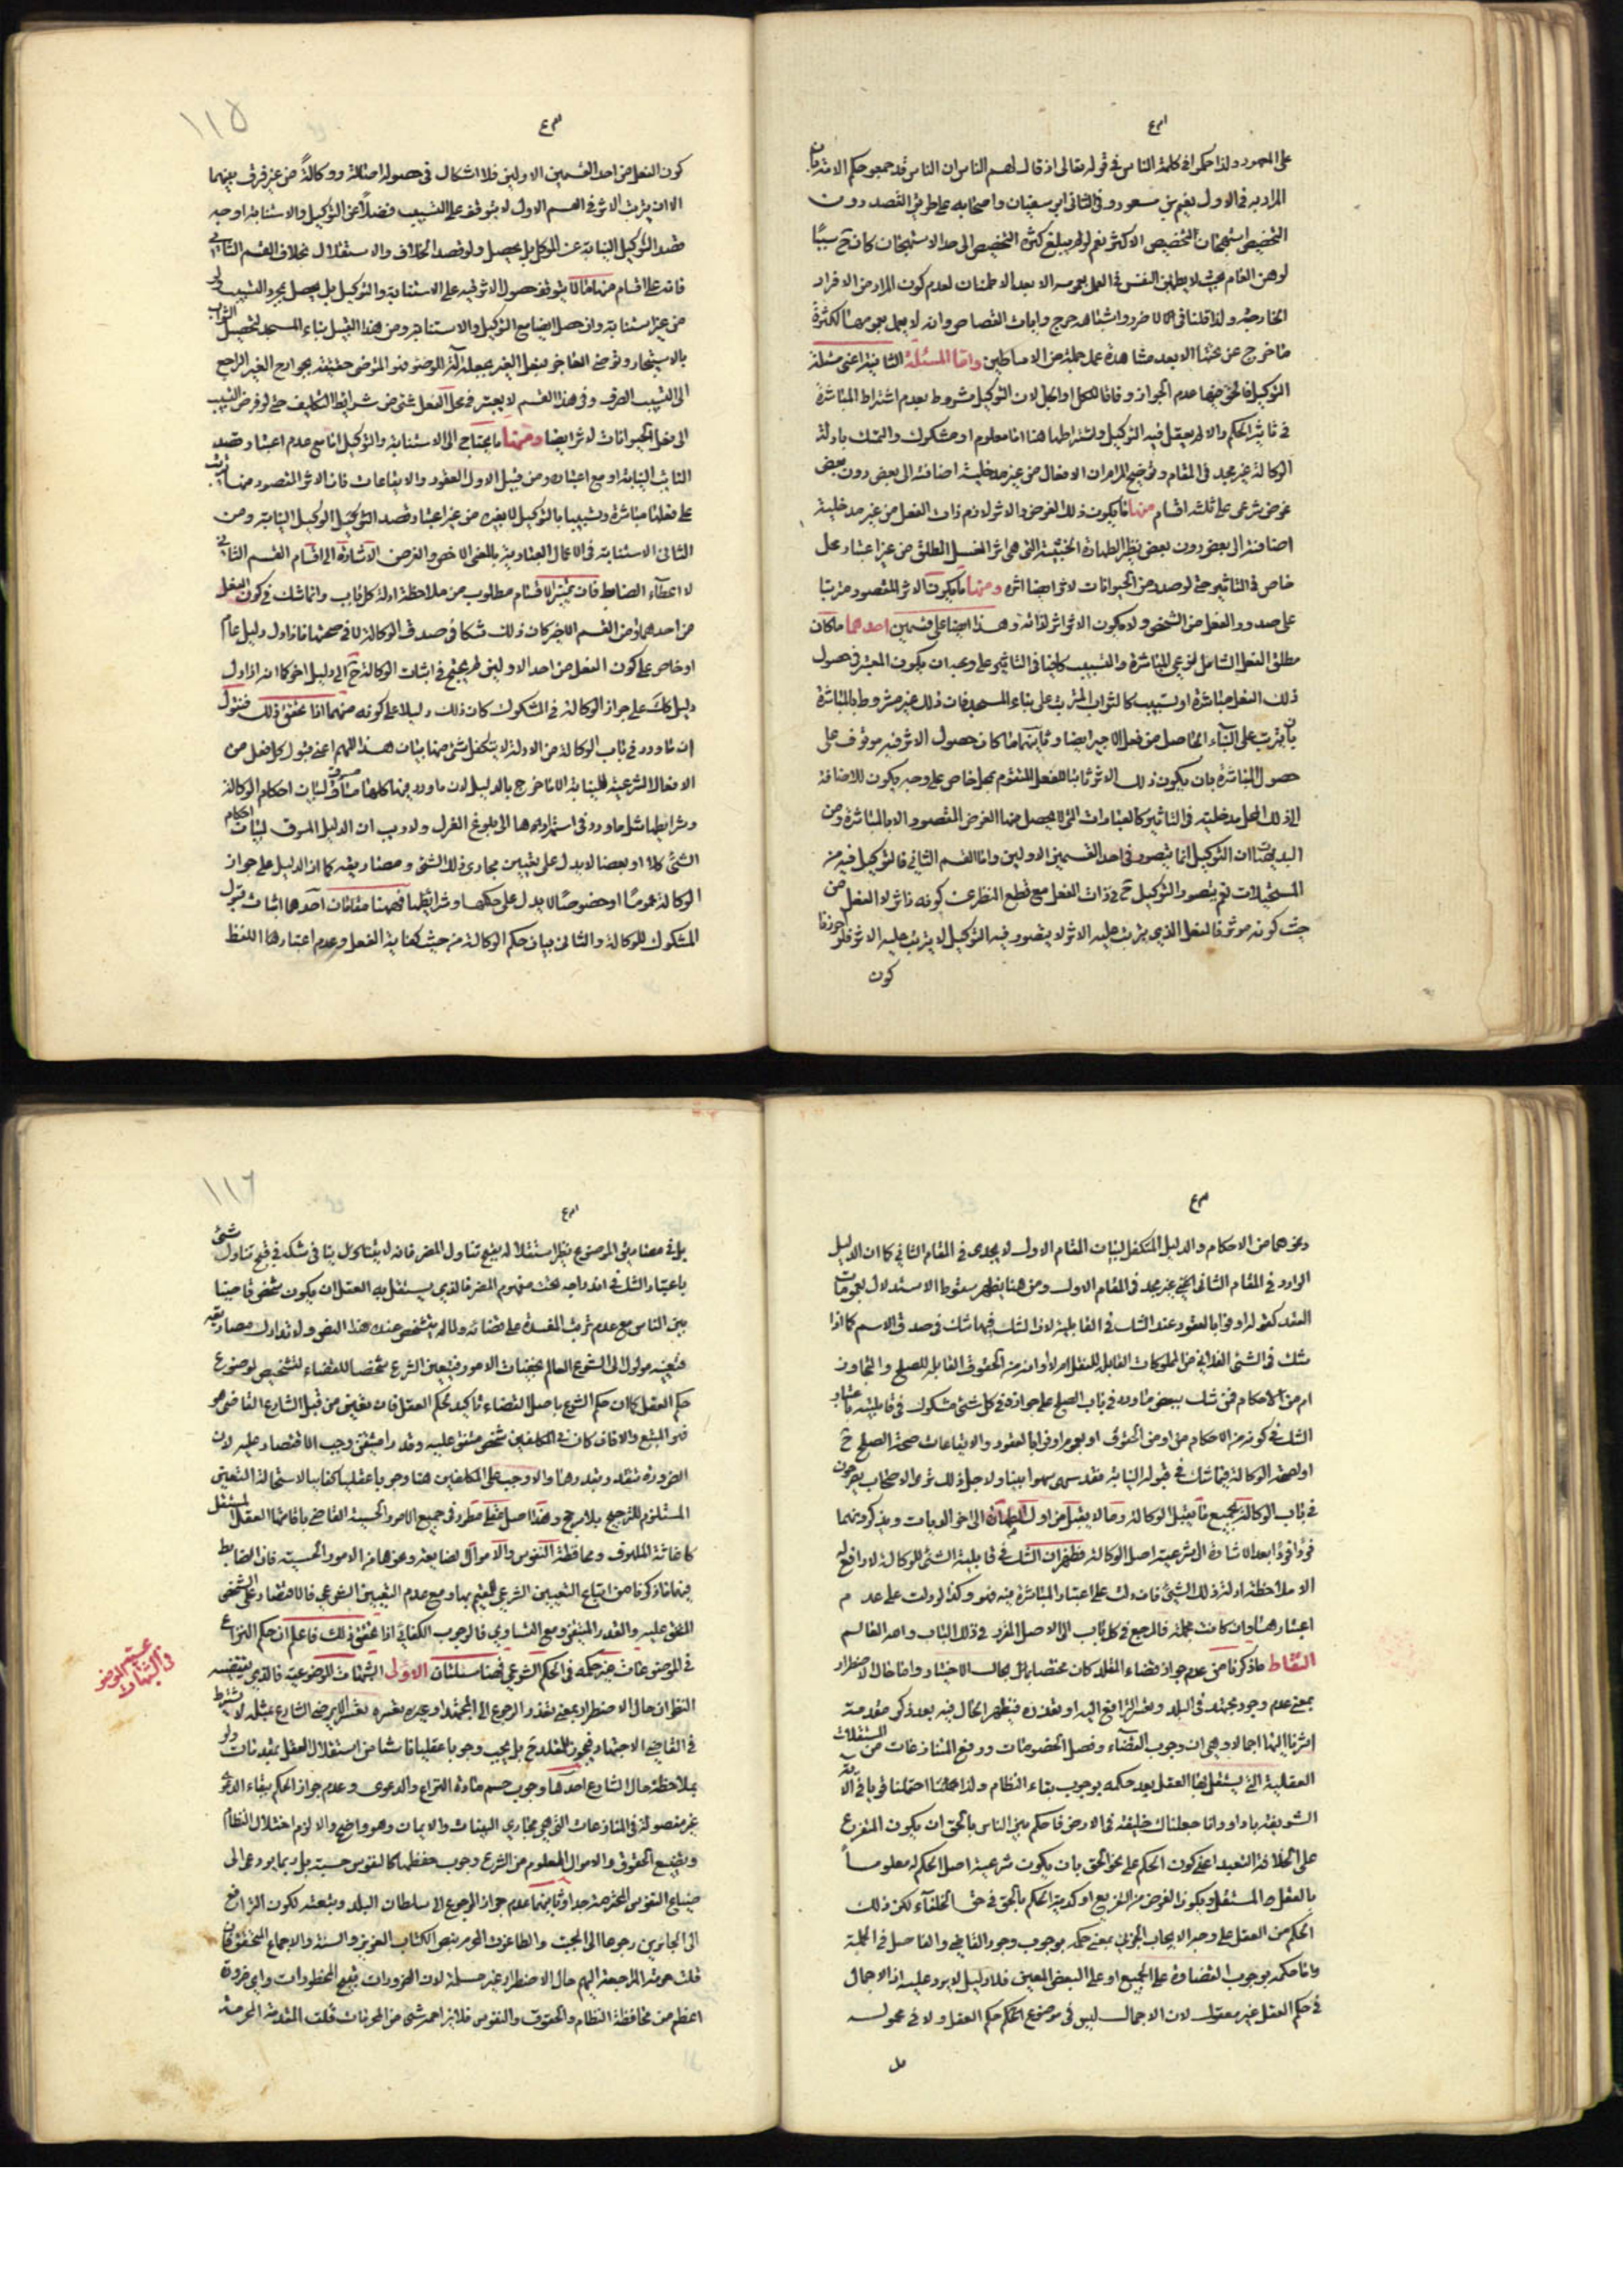 على المعهود ولذا حكموا في كلمة الناس في قوله تعالى اذ قال لهم الناس ان الناس قد جمعوا حكم الائمة بان
المراد به في الاول نعيم بن مسعود وفي الثاني ابي سفيان واصحابه على طريق القصد دون
التخصيص استهجان التخصيص الاكثر نعم لو لم يبلغ كثرة التخصيص الى حد الاستهجان كان ح سببًا
لوهن العام بحيث لا يطمئن النفس في العمل بعمومه الا بعد الاطمئنان لعدم كون المراد من الافراد
الخارجة ولذا قلنا في لا ضرر واشباهه حرج وايات القصاص وانه لا يعمل بعمومها لكثرة
ما خرج عن تحتها الا بعد مشاهدة عمل جملة من الاساطين واما المسئلة الثانية اعني مسئلة
التوكيل فالحق فيها عدم الجواز وفاقا للكل او الجل لان التوكيل مشروط بعدم اشتراط المباشرة
في تاثير الحكم والا لم يعقل فيه التوكيل واشتراطها هنا اما معلوم او مشكوك والتمسك بادلة
الوكالة غير مجد في المقام وتوضيح المرام ان الافعال من غير مدخلية اضافته الى بعض دون بعض
غرض شرعي على ثلثة اقسام منها ما يكون ذلك الغرض والاثر لازم ذات الفعل من غير مدخلية
اضافته الى بعض دون بعض نظير الطهارة الخبثية التي هي اثر الغسل المطلق من غير اعتبار محل
خاص في التاثير حتى لو صدر من الحيوانات لاثر ايضا اثره ومنها ما يكون الاثر المقصود مترتبا
على صدور الفعل من الشخص ولا يكون الاثر اثر لذاته وهذا ايضا على قسمين احدهما ما كان
مطلق الفعل الشامل لنوعي المباشرة والتسبيب كافيا في التاثير على وجه ان يكون المعتبر في حصول
ذلك الفعل مباشرة او تسبيب كالثواب المترتب على بناء المسجد فان ذلك غير مشروط بالمباشرة
بان يترتب على البناء الحاصل من فعل الاجير ايضا وثانيهما ما كان حصول الاثر فيه موقوف على
حصول المباشرة بان يكون ذلك الاثر ثابتا للفعل المتقوم بمحل خاص على وجه يكون للاضافة
الى ذلك المحل مدخلية في التاثير كالعبادات التي لا يحصل منها الغرض المقصود الا بالمباشرة ومن
البديهيات ان التوكيل انما يتصور في احد القسمين الاولين واما القسم الثاني فالتوكيل فيه من
المستحيلات نعم يتصور التوكيل ح في ذات الفعل مع قطع النظر عن كونه مؤثرا لا الفعل من
حيث كونه موثرا فالفعل الذي يترتب عليه الاثر لا يتصور فيه التوكيل لا يترتب عليه الاثر فلو احرزنا
كون
١١٥
كون الفعل من احد القسمين الاولين فلا اشكال في حصوله اصالة ووكالةً من غير فرق بينهما
الا ان ترتب الاثر في القسم الاول لا يتوقف على التسبيب فضلًا عن التوكيل والاستنابة او جه
قصد التوكيل النيابة عن الموكل بل يحصل ولو قصد الخلاف والاستقلال بخلاف القسم الثاني
فانه على اقسام منها ما لا يتوقف حصول الاثر فيه على الاستنابة والتوكيل بل يحصل بمجرد التسبيب ولو
من غير استنابة وان حصل ايضا مع التوكيل والاستنابة ومن هذا القبيل بناء المسجد لتحصيل الثواب
بالاستيجار وتوضي العاجز بفعل الغير بجعله آلة الوضوء فهو المتوضي حقيقة بجوارح الغير الراجع
الى التسبيب الصرف وفي هذا القسم لا يعتبر في محل الفعل شئ من شرايط التكليف حتى لو فرض التسبيب
الى فعل الحيوانات لاثر ايضا ومنها ما يحتاج الى الاستنابة والتوكيل اما مع عدم اعتبار وقصد
النائب النيابة او مع اعتباره ومن قبيل الاول العقود والايقاعات فان الاثر المقصود منها يترتب
على فعلنا مباشرة وتسبيبا بالتوكيل للغير من غير اعتبار وقصد التوكيل الوكيل النيابة ومن
الثاني الاستنابة في الاعمال العبادية بالمعنى الاخص والغرض الاشارة الى اقسام القسم الثاني
لا اعطاء الضابط فان تميز الاقسام مطلوب من ملاحظة ادلة كل باب وانما شك في كون الفعل
من احدهما او من القسم الاخير كان ذلك شكا في صدق الوكالة لا في صحتها فاذا دل دليل عام
او خاص على كون الفعل من احد الاولين لم يحتج في اثبات الوكالة ح الى دليل اخر كما انه اذا دل
دليل كك على جواز الوكالة في المشكوك كان ذلك دليلا على كونه منهما اذا تحقق ذلك فنقول
ان ما ورد في باب الوكالة من الادلة لا يتكفل شئ منها بيان هذا المهم اعني قبول كل فعل من
الافعال الشرعية للنيابة الا ما خرج بالدليل لان ما ورد فيها كلها مساق مسوق لبيان احكام الوكالة
وشرايطها مثل ما ورد في استمرارها الى بلوغ العزل ولا ريب ان الدليل المسوق لبيان احكام
الشئ كلا او بعضا لا يدل على تعيين مجاري ذلك الشئ ومصاديقه كما ان الدليل على جواز
الوكالة عمومًا او خصوصًا لا يدل على حكمها وشرايطها فههنا مقامان احدهما اثبات قبول
المشكوك للوكالة والثاني بيان حكم الوكالة من حيث كفاية الفعل وعدم اعتبارها اللفظ
ونحوهما من الاحكام والدليل المتكفل لبيان المقام الاول لا يجدي في المقام الثاني كما ان الدليل
الوارد في المقام الثاني غير مجد في المقام الاول ومن هنا يظهر سقوط الاستدلال بعمومات
العقد كقوله اوفوا بالعقود عند الشك في القابلية لان الشك فيها شك في صدق الاسم كما اذا
شك في الشئ الفلاني من المملوكات القابلة للنقل ام لا او انه من الحقوق القابلة للصلح والتجاوز
ام من الاحكام فمن شك ببعض ما ورد في باب الصلح على جوازه في كل شئ مشكوك في قابليته باعتبار
الشك في كونه من الاحكام من او من الحقوق او بعموم اوفوا بالعقود والايقاعات صحة الصلح ح
او لصحة الوكالة فيما شك في قبوله النيابة فقد سهى سهوا بينا ولاجل ذلك ترى الاصحاب يصرحون
في باب الوكالة بجميع ما يقبل الوكالة وما لا يقبل من اول الطهارة الى اخر الديات ويذكرونهما
فردا فردا بعد الاشارة الى شرعية اصل الوكالة فظهر ان الشك في قابلية الشئ للوكالة لا دافع له
الا ملاحظة ادلة ذلك الشئ فان دلت على اعتبار المباشرة فيه فهو وكذا لو دلت على عدم
اعتبارها وان كانت مجملة فالمرجع في كل باب الى الاصل المقرر في ذلك الباب واحد العالم
النشاط ما ذكرنا من عدم جواز قضاء المقلد كان مختصا بحال الاختيار واما حال الاضطرار
بمعنى عدم وجود مجتهد في البلد وتعسر الترافع اليه او تعذره فيظهر الحال فيه بعد ذكر مقدمة
اشرنا اليها اجمالا وهي ان وجوب القضاء وفصل الخصومات ورفع المنازعات من المستقلات
العقلية التي يستقل بها العقل بعد حكمه بوجوب بقاء النظام ولذا احتملنا في الاية
الشريفة يا داود انا جعلناك خليفة في الارض فاحكم بين الناس بالحق ان يكون المتفرع
على الخلافة التعبد اعني كون الحكم على نحو الحق بان يكون شرعية اصل الحكم له معلوماً
بالعقل المستقل ويكون الغرض من التفريع او كدية الحكم بالحق في حق الخلفاء لكن ذلك
الحكم من العقل على وجه الايجاب الجزئي بمعنى حكمه بوجوب وجود القاضي والفاصل في الجملة
واما حكمه بوجوب القضاوة على الجميع او على البعض المعين فلا دليل لا يرد عليه اذ الاجمال
في حكم العقل غير معقول لان الاجمال ليس في موضوع الحكم حكم العقل ولا في محموله
بل
١١٦
بل في مصاديق الموضوع نظير استقلاله بقبح تناول المضر فانه لا يتناول ينافي شكه في قبح تناول شئ
باعتبار الشك في اندراجه تحت مفهوم المضر فالذي يستقل به العقل ان يكون شخص قاضيا
بين الناس مع عدم ترتب المفسدة على قضائه ولما لم يتشخص عنده هذا الشخص ولا تدارك مصاديقه
فتعينه موكول الى الشرع العالم بخفيات الامور فتعيين الشرع شخصا للقضاء تشخيص لموضوع
حكم العقل كما ان حكم الشرع باصل القضاء تاكيد لحكم العقل فان تعين من قبل الشارع القاضي هو
فهو المتبع والا فان كان في المكلفين شخص متفق عليه وقدر متيقن وجب الاقتصار عليه لان
الضرورة تتقدر بقدرها والا وجب على المكلفين هنا وجوبا عقليا كفاييا لاستحالة التعيين
المستلزم للترجيح بلا مرجح وهذا اصل عقلي مطرد في جميع الامور الحسبية القاضي باقامتها العقل المستقل
كاغاثة الملهوف ومحافظة النفوس والاموال الضايعة ونحوهما من الامور الحسبية فان الضابط
فيها ما ذكرنا من اتباع التعيين الشرعي للقيم بها ومع عدم التعيين الشرعي فالاقتصار على الشخص
المتفق عليه والقدر المتيقن ومع التساوي فالوجوب الكفائي اذا تحقق ذلك فاعلم ان حكم النزاع
في الموضوعات غير حكمه في الحكم الشرعي فهنا مسئلتان الاولى الشبهات الموضوعية فالذي يقتضيه
النظر ان حال الاضطرار بمعنى تعذر الرجوع الى المجتهد او عسره تعسره تعسرا لا يرضى الشارع بمثله لا يشترط
في القاضي الاجتهاد فيجوز للمقلد ح بل يجب وجوبا عقليا ناشئا من استقلال العقل بمقدمات ولو
بملاحظة حال الشارع احدها وجوب حسم مادة النزاع والدعوى وعدم جواز الحكم ببقاء الدعوى
غير مفصولة في المنازعات التي هي مجاري البينات والايمان وهو واضح والا لزم اختلال النظام
وتضييع الحقوق والاموال المعلوم من الشرع وجوب حفظها كالنفوس حسبة بل ربما يودي الى
ضياع النفوس المحترمة جدا وثانيها عدم جواز الرجوع الى سلطان البلد وشبهه لكون الترافع
الى الجائرين رجوعا الى الجبت والطاغوت المحرم بنص الكتاب العزيز والسنة والاجماع المحقق فان
قلت حرمة المراجعة اليهم حال الاضطرار غير مسلمة لان الضرورات تبيح المحظورات واي ضرورة
اعظم من محافظة النظام والحقوق والنفوس فلا يزاحمه شئ من المحرمات قلت المقدمة المحرمة